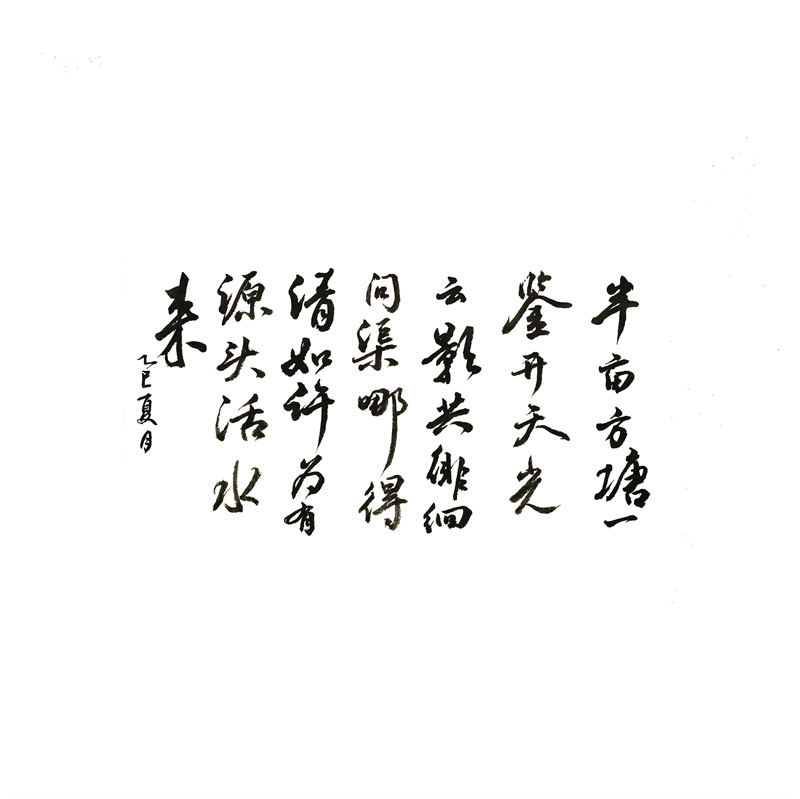 半亩方塘一
鉴开天光
云影共徘徊
问渠哪得
清如许为有
源头活水
来
乙巳夏月